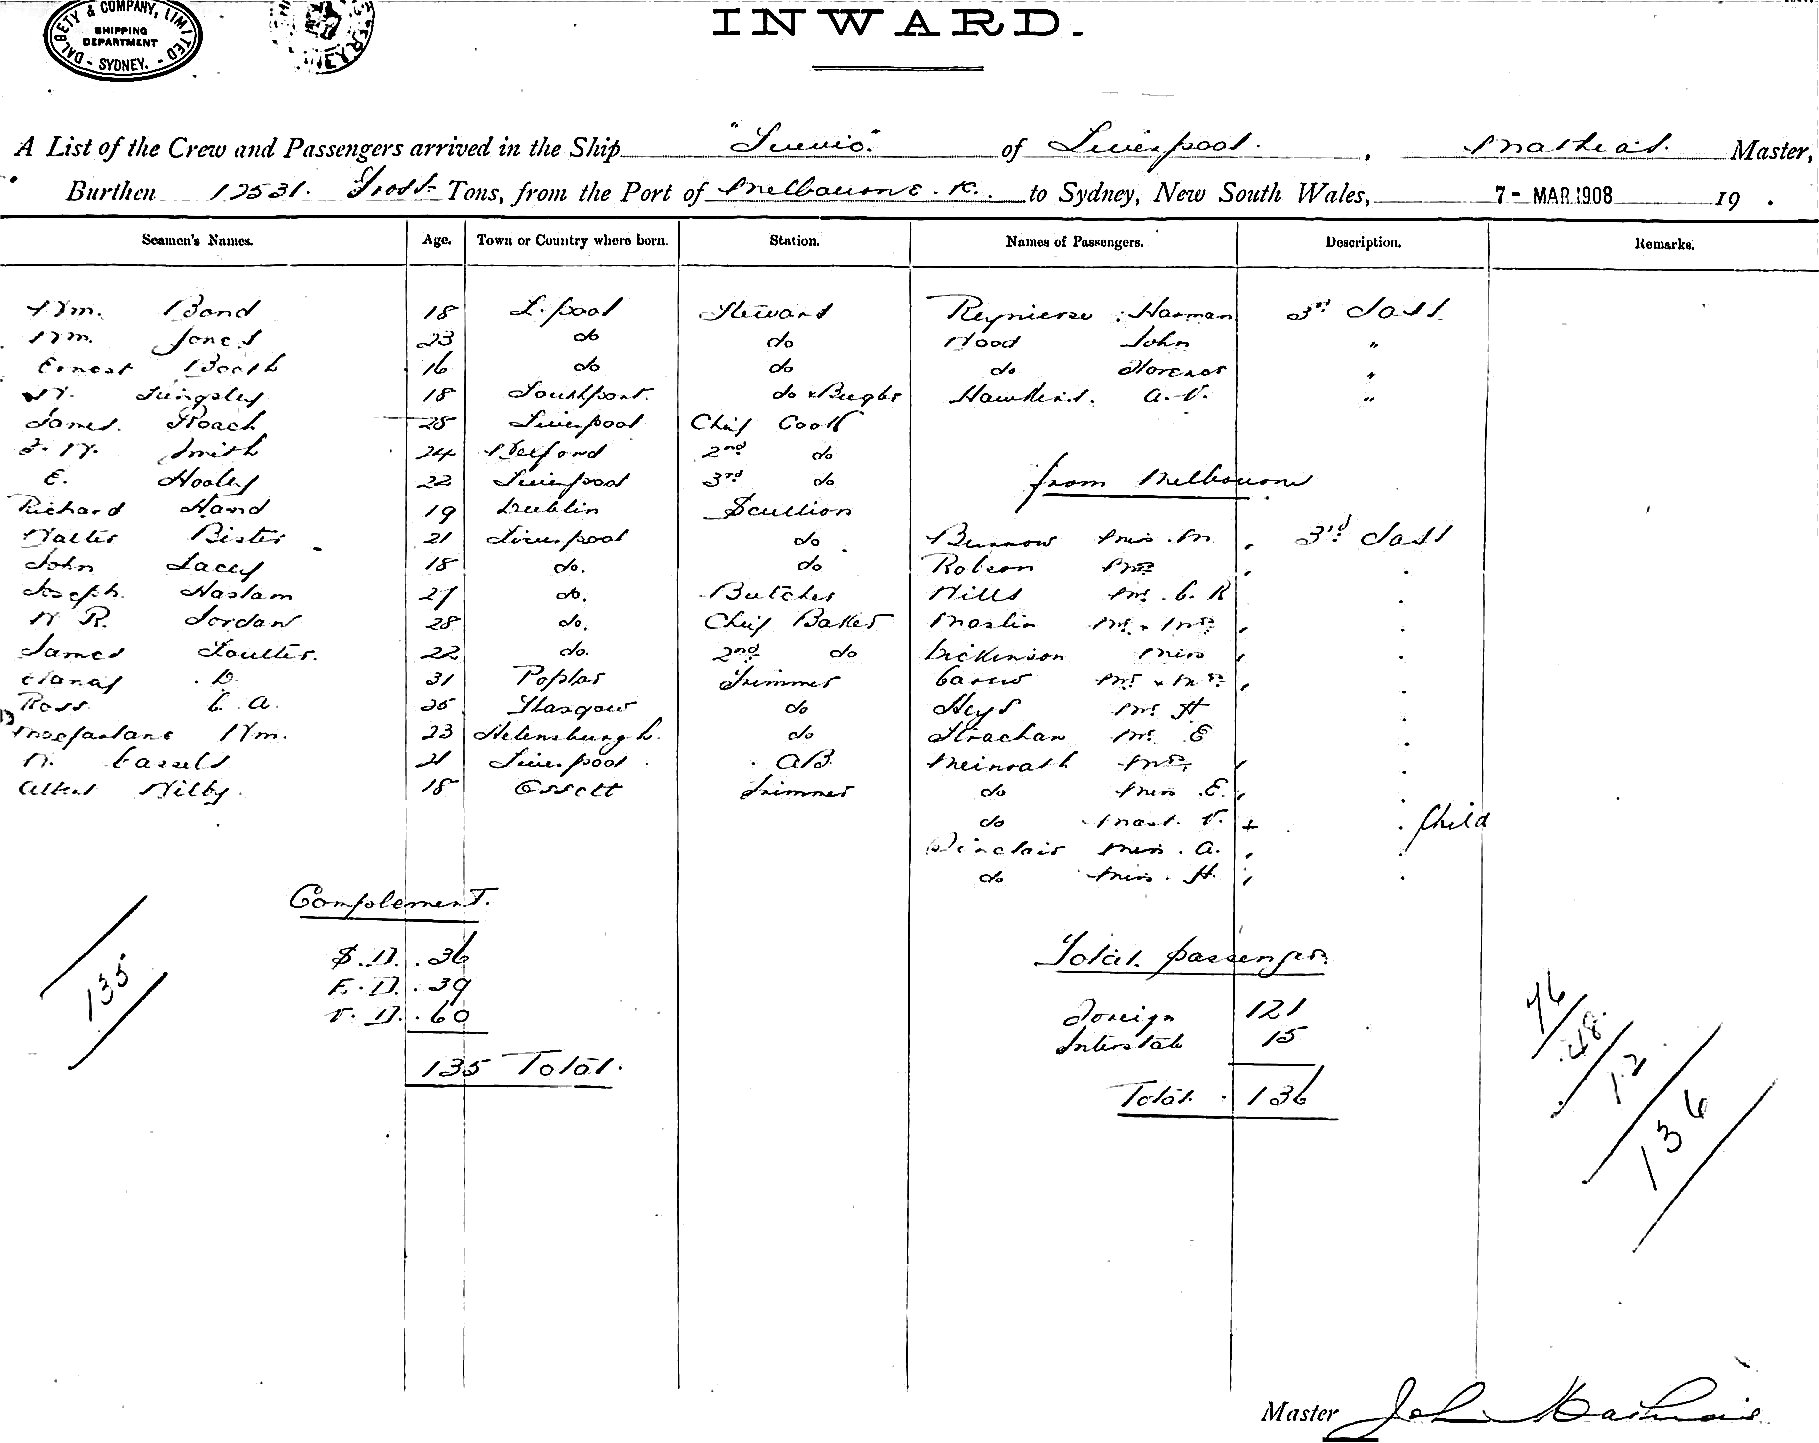 DALGETY & COMPANY, LIMITED
SHIPPING DEPARTMENT
- SYDNEY. -
INWARD.
A List of the Crew and Passengers arrived in the Ship "Suevic." of Liverpool. , Mathias. Master,
Burthen 12531. Gross Tons, from the Port of Melbourne. to Sydney, New South Wales, 7 - MAR 1908 19 .
Seamen's Names. Age. Town or Country where born. Station. Names of Passengers. Description. Remarks.
Wm. Bond 18 L.pool Steward Reynierse Harman 3rd Class
Wm. Jones 23 do do Wood John "
Ernest Booth 16 do do do Florence "
W. Lingsley 18 Southport. do & Bugler Hawkins. A.V. "
James. Roach 25 Liverpool Chief Cook
F. W. Smith 24 2nd do
E. Hooley 22 Liverpool 3rd do from Melbourne
Richard Hand 19 Dublin Scullion
Walter Bister 21 Liverpool do Burrow Miss. M. 3rd Class
John Lacey 18 do. do Robson Mrs
Joseph. Haslam 27 do. Butcher Wills Mr. C. R
W R. Jordan 28 do. Chief Baker Maslin Mr. & Mrs
James Soulter. 22 do. 2nd do Dickinson Miss
D. 31 Poplar Trimmer Carew Mr & Mrs
Ross C. A. 25 Glasgow do Heys Mr. H
Macfarlane Wm. 23 Helensburgh. do Strachan Mr. E
W. Cassels 21 Liverpool. A.B. Meinrath Mrs.
Albert Wilby. 18 Ossett Trimmer do Miss. E.
do Mast. V. Child
Sinclair Miss. A.
do Miss. H.
Complement.
S. D. 36
E. D. 39
V. D. 60
135 Total.
135
Total passengers
Foreign 121
Interstate 15
Total. 136
76
48.
12
136
Master John Mathias